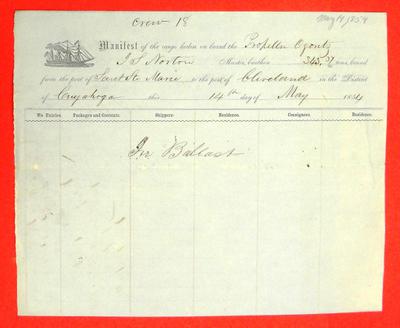 Crew 18
May 14, 1854
Manifest of the cargo laden on board the Propeller Ogontz
J S Norton Master, burthen 345.37 tons, bound
from the port of Sault Ste Marie to the port of Cleveland in the District
of Cuyahoga this 14th day of May 1854
No. Entries. Packages and Contents. Shippers. Residence. Consignees. Residence.
In Ballast